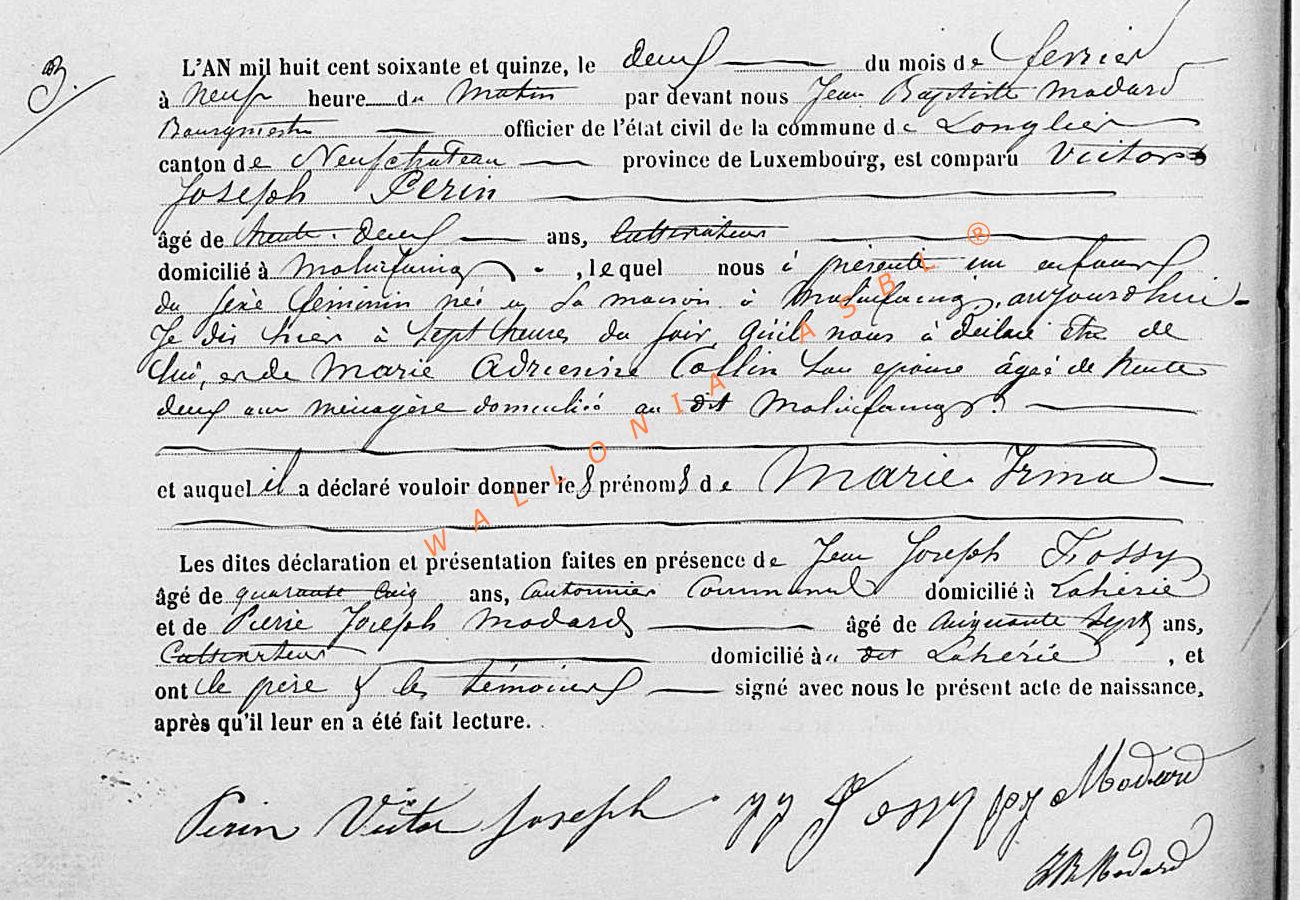 3.
L'AN mil huit cent soixante et quinze, le deux du mois de fevrier
à neuf heure du matin par devant nous Jean Baptiste Modard
Bourgmestre officier de l'état civil de la commune de Longlier
canton de Neufchateau province de Luxembourg, est comparu Victor
Joseph Perin
âgé de trente-deux ans, Cultivateur
domicilié à Molinfaing, lequel nous à présenté un enfant
du sexe féminin né en sa maison à Molinfaing, aujourd'hui
Je dis hier à sept heures du soir, qu'il nous à déclaré être de
lui, et de Marie Adrienne Collin son epouse âgée de trente
deux ans ménagère domicilié au dit Molinfaing.
et auquel il a déclaré vouloir donner les prénoms de Marie Irma
Les dites déclaration et présentation faites en présence de Jean Joseph Fossy
âgé de quarante cinq ans, Cantonnier Communal domicilié à Lahérie
et de Pierre Joseph Modard âgé de cinquante sept ans,
Cultivateur domicilié à dit Lahérie, et
ont le père & les témoins signé avec nous le présent acte de naissance,
après qu'il leur en a été fait lecture.
Perin Victor Joseph JJ Fossy PJ Modard
JB Modard
WALLONIA ASBL ®